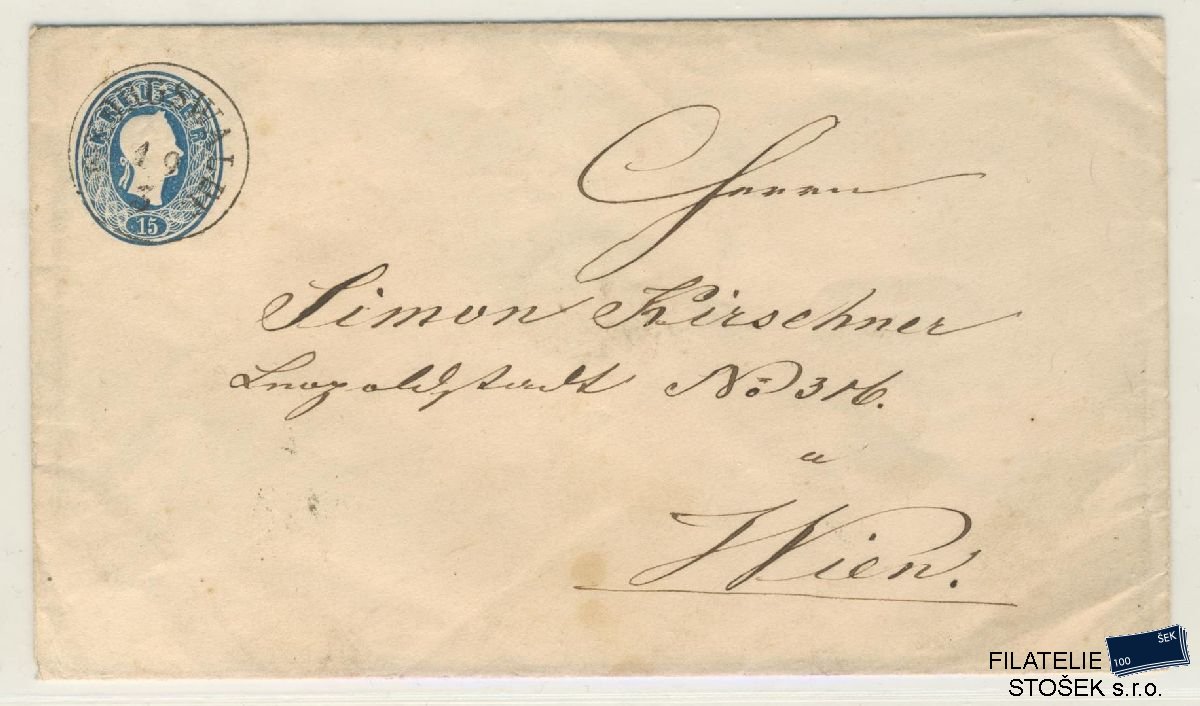 15
19
Herrn
Simon Kirschner
Leopoldstadt No 316.
a
Wien.
ŠEK
100
FILATELIE
STOŠEK s.r.o.